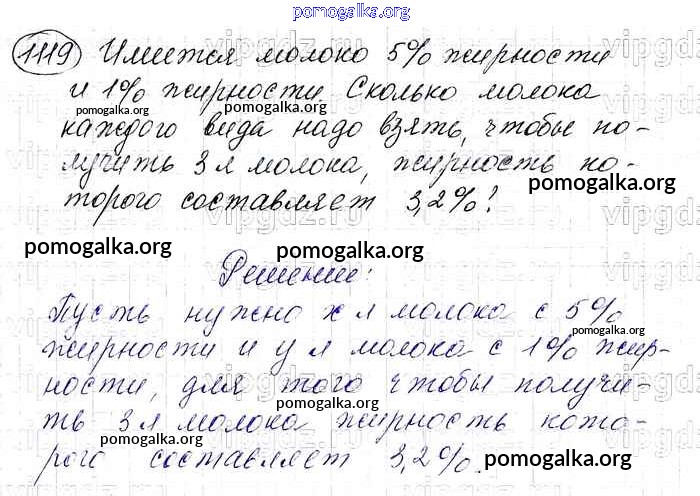 pomogalka.org
1119 Имеется молоко 5% жирности
и 1% жирности. Сколько молока
pomogalka.org pomogalka.org
каждого вида надо взять, чтобы по-
лучить 3 л молока, жирность ко-
торого составляет 3,2%?
pomogalka.org
pomogalka.org
pomogalka.org
Решение:
Пусть нужно x л молока с 5%
pomogalka.org
жирности и y л молока с 1% жир-
pomogalka.org
ности, для того чтобы получи-
ть 3 л молока жирность кото-
pomogalka.org
pomogalka.org
рого составляет 3,2%.
pomogalka.org